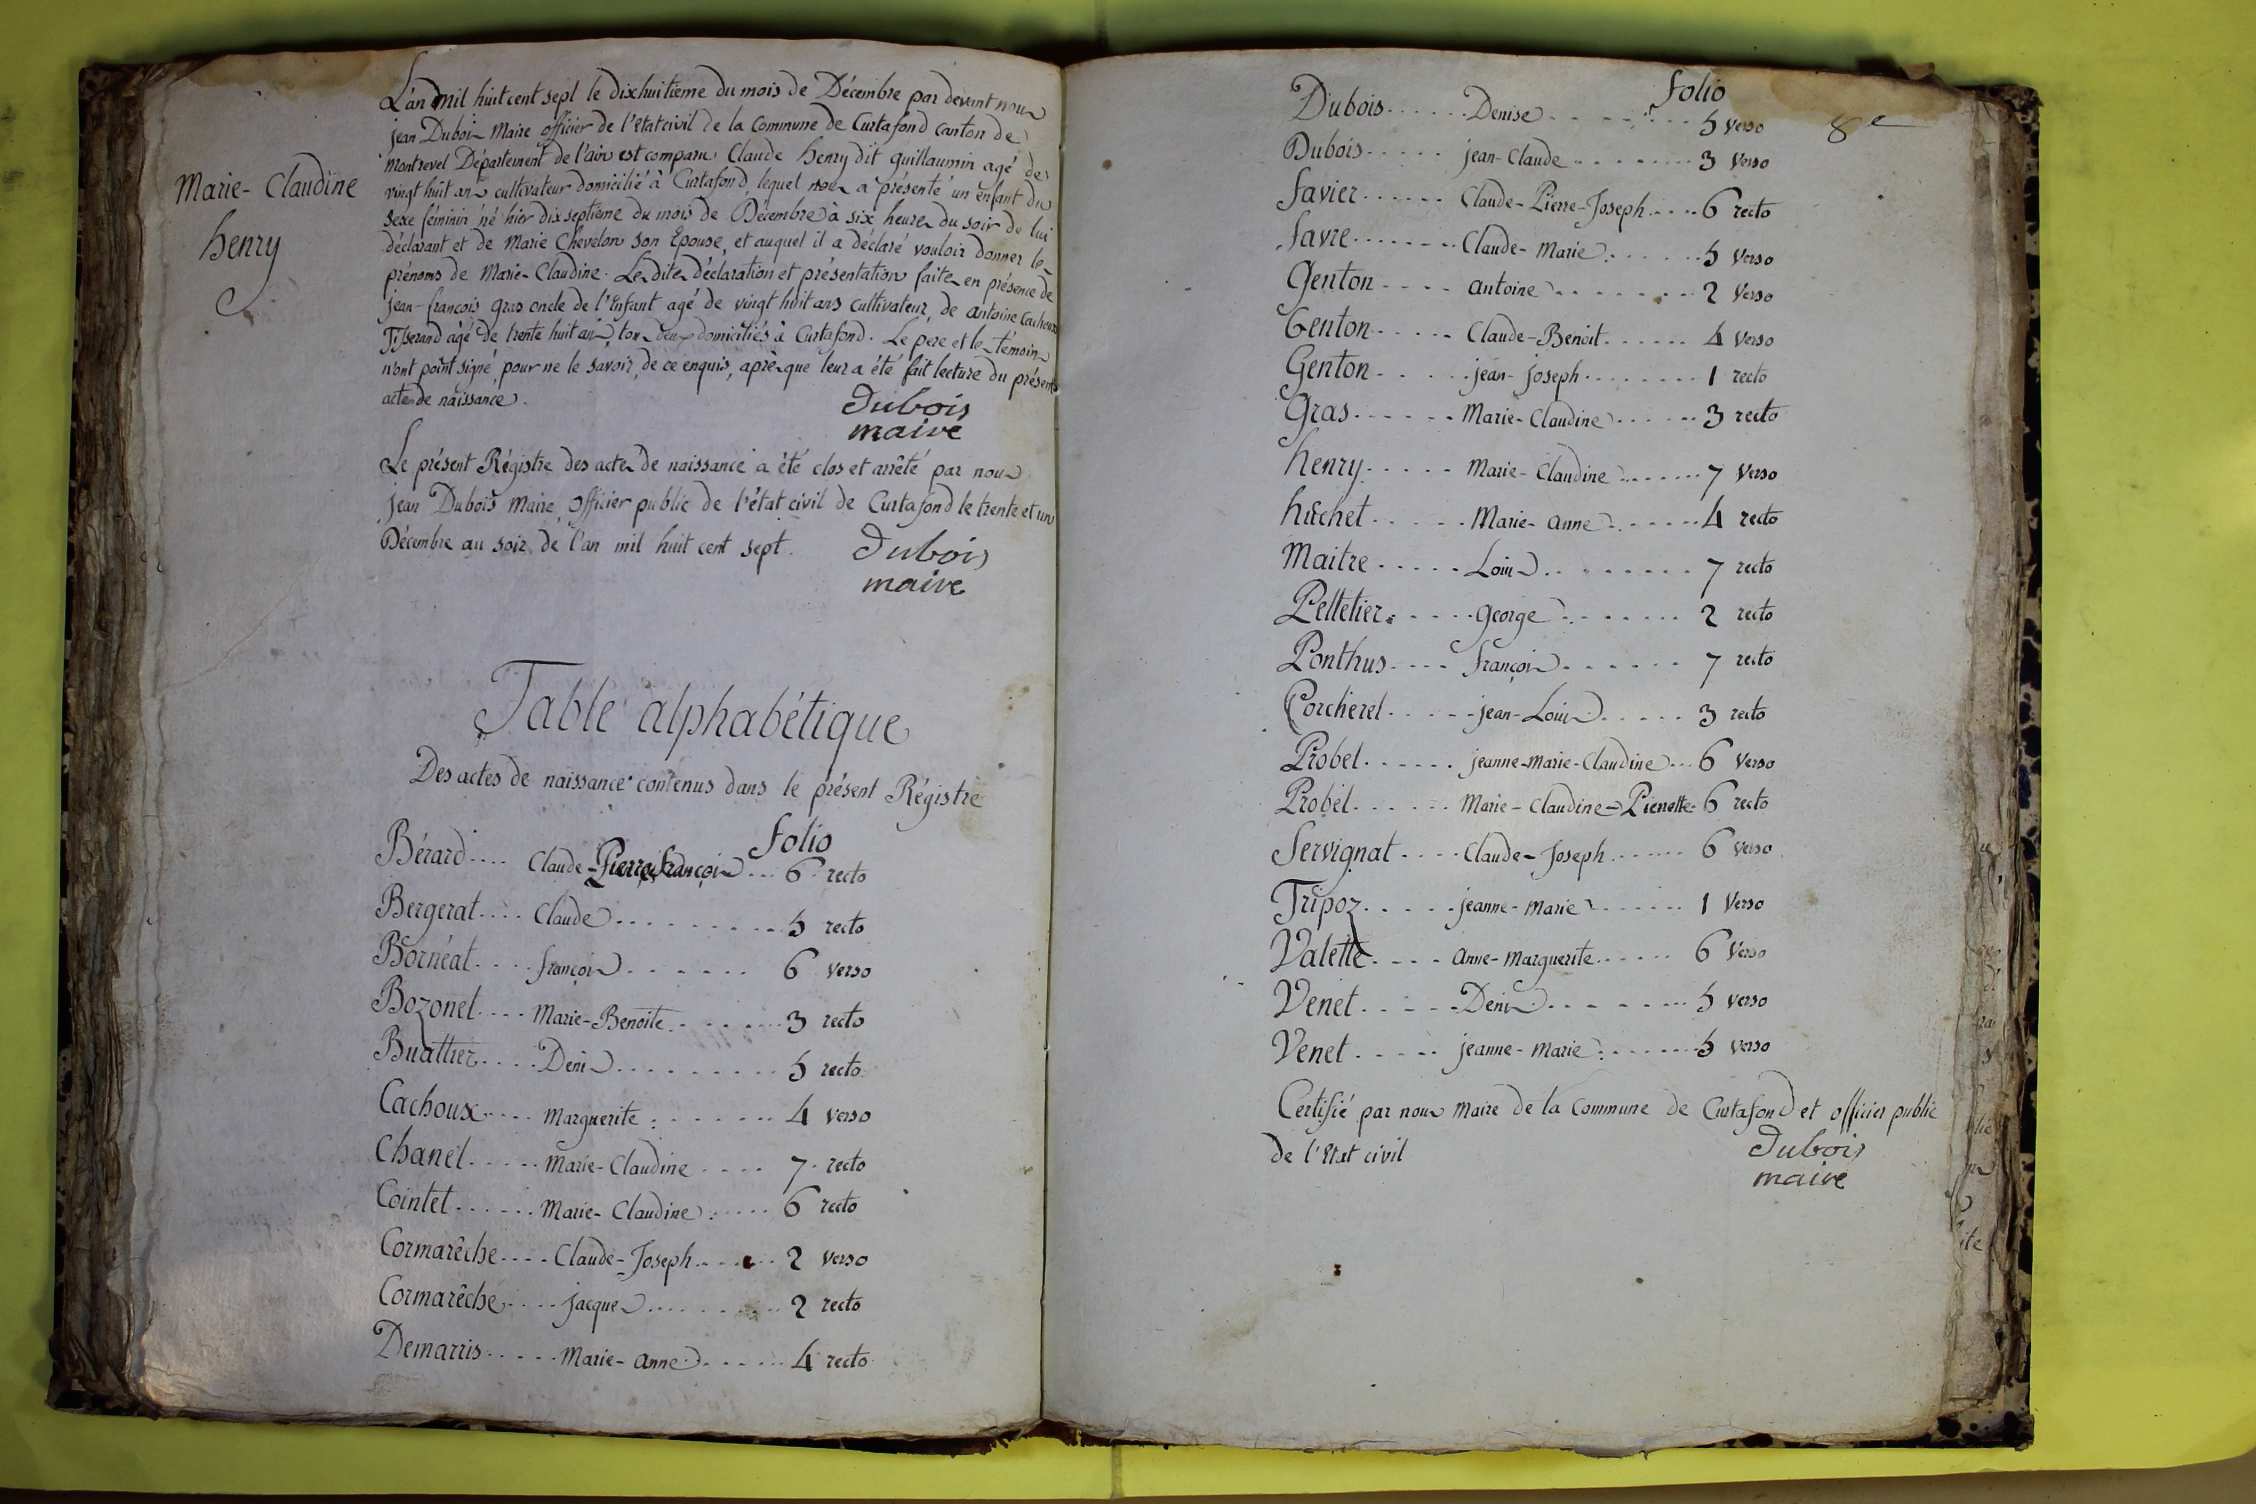 L'an mil huit cent sept le dixhuitième du mois de Décembre par devant nous
jean Dubois Maire officier de l'etat civil de la Commune de Curtafond canton de
montrevel Département de l'ain est comparu Claude henry dit guillaumin agé de
vingt huit ans cultivateur domicilié à Curtafond, lequel nous a présenté un enfant du
sexe féminin né hier dix septième du mois de Décembre à six heures du soir de lui
déclarant et de Marie Chevelon son Epouse, et auquel il a déclaré vouloir donner les
prénoms de Marie-Claudine. Lesdites déclaration et présentation faites en présence de
jean-françois gras oncle de l'Enfant agé de vingt huit ans cultivateur, de antoine Cachoux
Tisserand agé de trente huit ans, tous deux domiciliés à Curtafond. Le pere et les témoins
n'ont point signé pour ne le savoir, de ce enquis, après que leur a été fait lecture du présent
acte de naissance.
Marie-Claudine
henry
Dubois
maire
Le présent Régistre des actes de naissance a été clos et arrêté par nous
jean Dubois Maire, Officier public de l'état civil de Curtafond le trente et un
Décembre au soir de l'an mil huit cent sept.
Dubois
maire
Table alphabétique
Des actes de naissance contenus dans le présent Régistre
folio
Bérard.... Claude-Pierre françois... 6 recto
Bergerat.... Claude......... 5 recto
Bornéat.... françois....... 6 verso
Bozonet.... Marie-Benoite....... 3 recto
Buattier.... Denis.......... 5 recto
Cachoux.... Marguerite....... 4 verso
Chanel..... Marie-Claudine.... 7 recto
Cointet...... Marie-Claudine..... 6 recto
Cormarêche.... Claude-Joseph..... 2 verso
Cormarêche.... jacques........ 2 recto
Demarris..... Marie-anne...... 4 recto
folio
8e
Dubois...... Denise........ 5 verso
Dubois..... jean-Claude........ 3 verso
favier...... Claude-Pierre-Joseph.... 6 recto
favre....... Claude-Marie....... 5 verso
Genton.... antoine....... 2 verso
Genton..... Claude-Benoit...... 4 verso
Genton..... jean-joseph........ 1 recto
Gras...... Marie-Claudine...... 3 recto
henry..... Marie-Claudine....... 7 verso
huchet..... Marie-anne...... 4 recto
Maitre..... Louis......... 7 recto
Pelletier..... george....... 2 recto
Ponthus.... françois...... 7 recto
Porcherel..... jean-Louis..... 3 recto
Probel...... jeanne-Marie-Claudine... 6 verso
Probel...... Marie-Claudine-Pierrette. 6 recto
Servignat.... Claude-Joseph...... 6 verso
Tripoz..... jeanne-marie...... 1 verso
Valette.... anne-marguerite...... 6 verso
Venet..... Denis........ 5 verso
Venet..... jeanne-marie....... 5 verso
Certifié par nous Maire de la Commune de Curtafond et officier public
de l'Etat civil
Dubois
maire